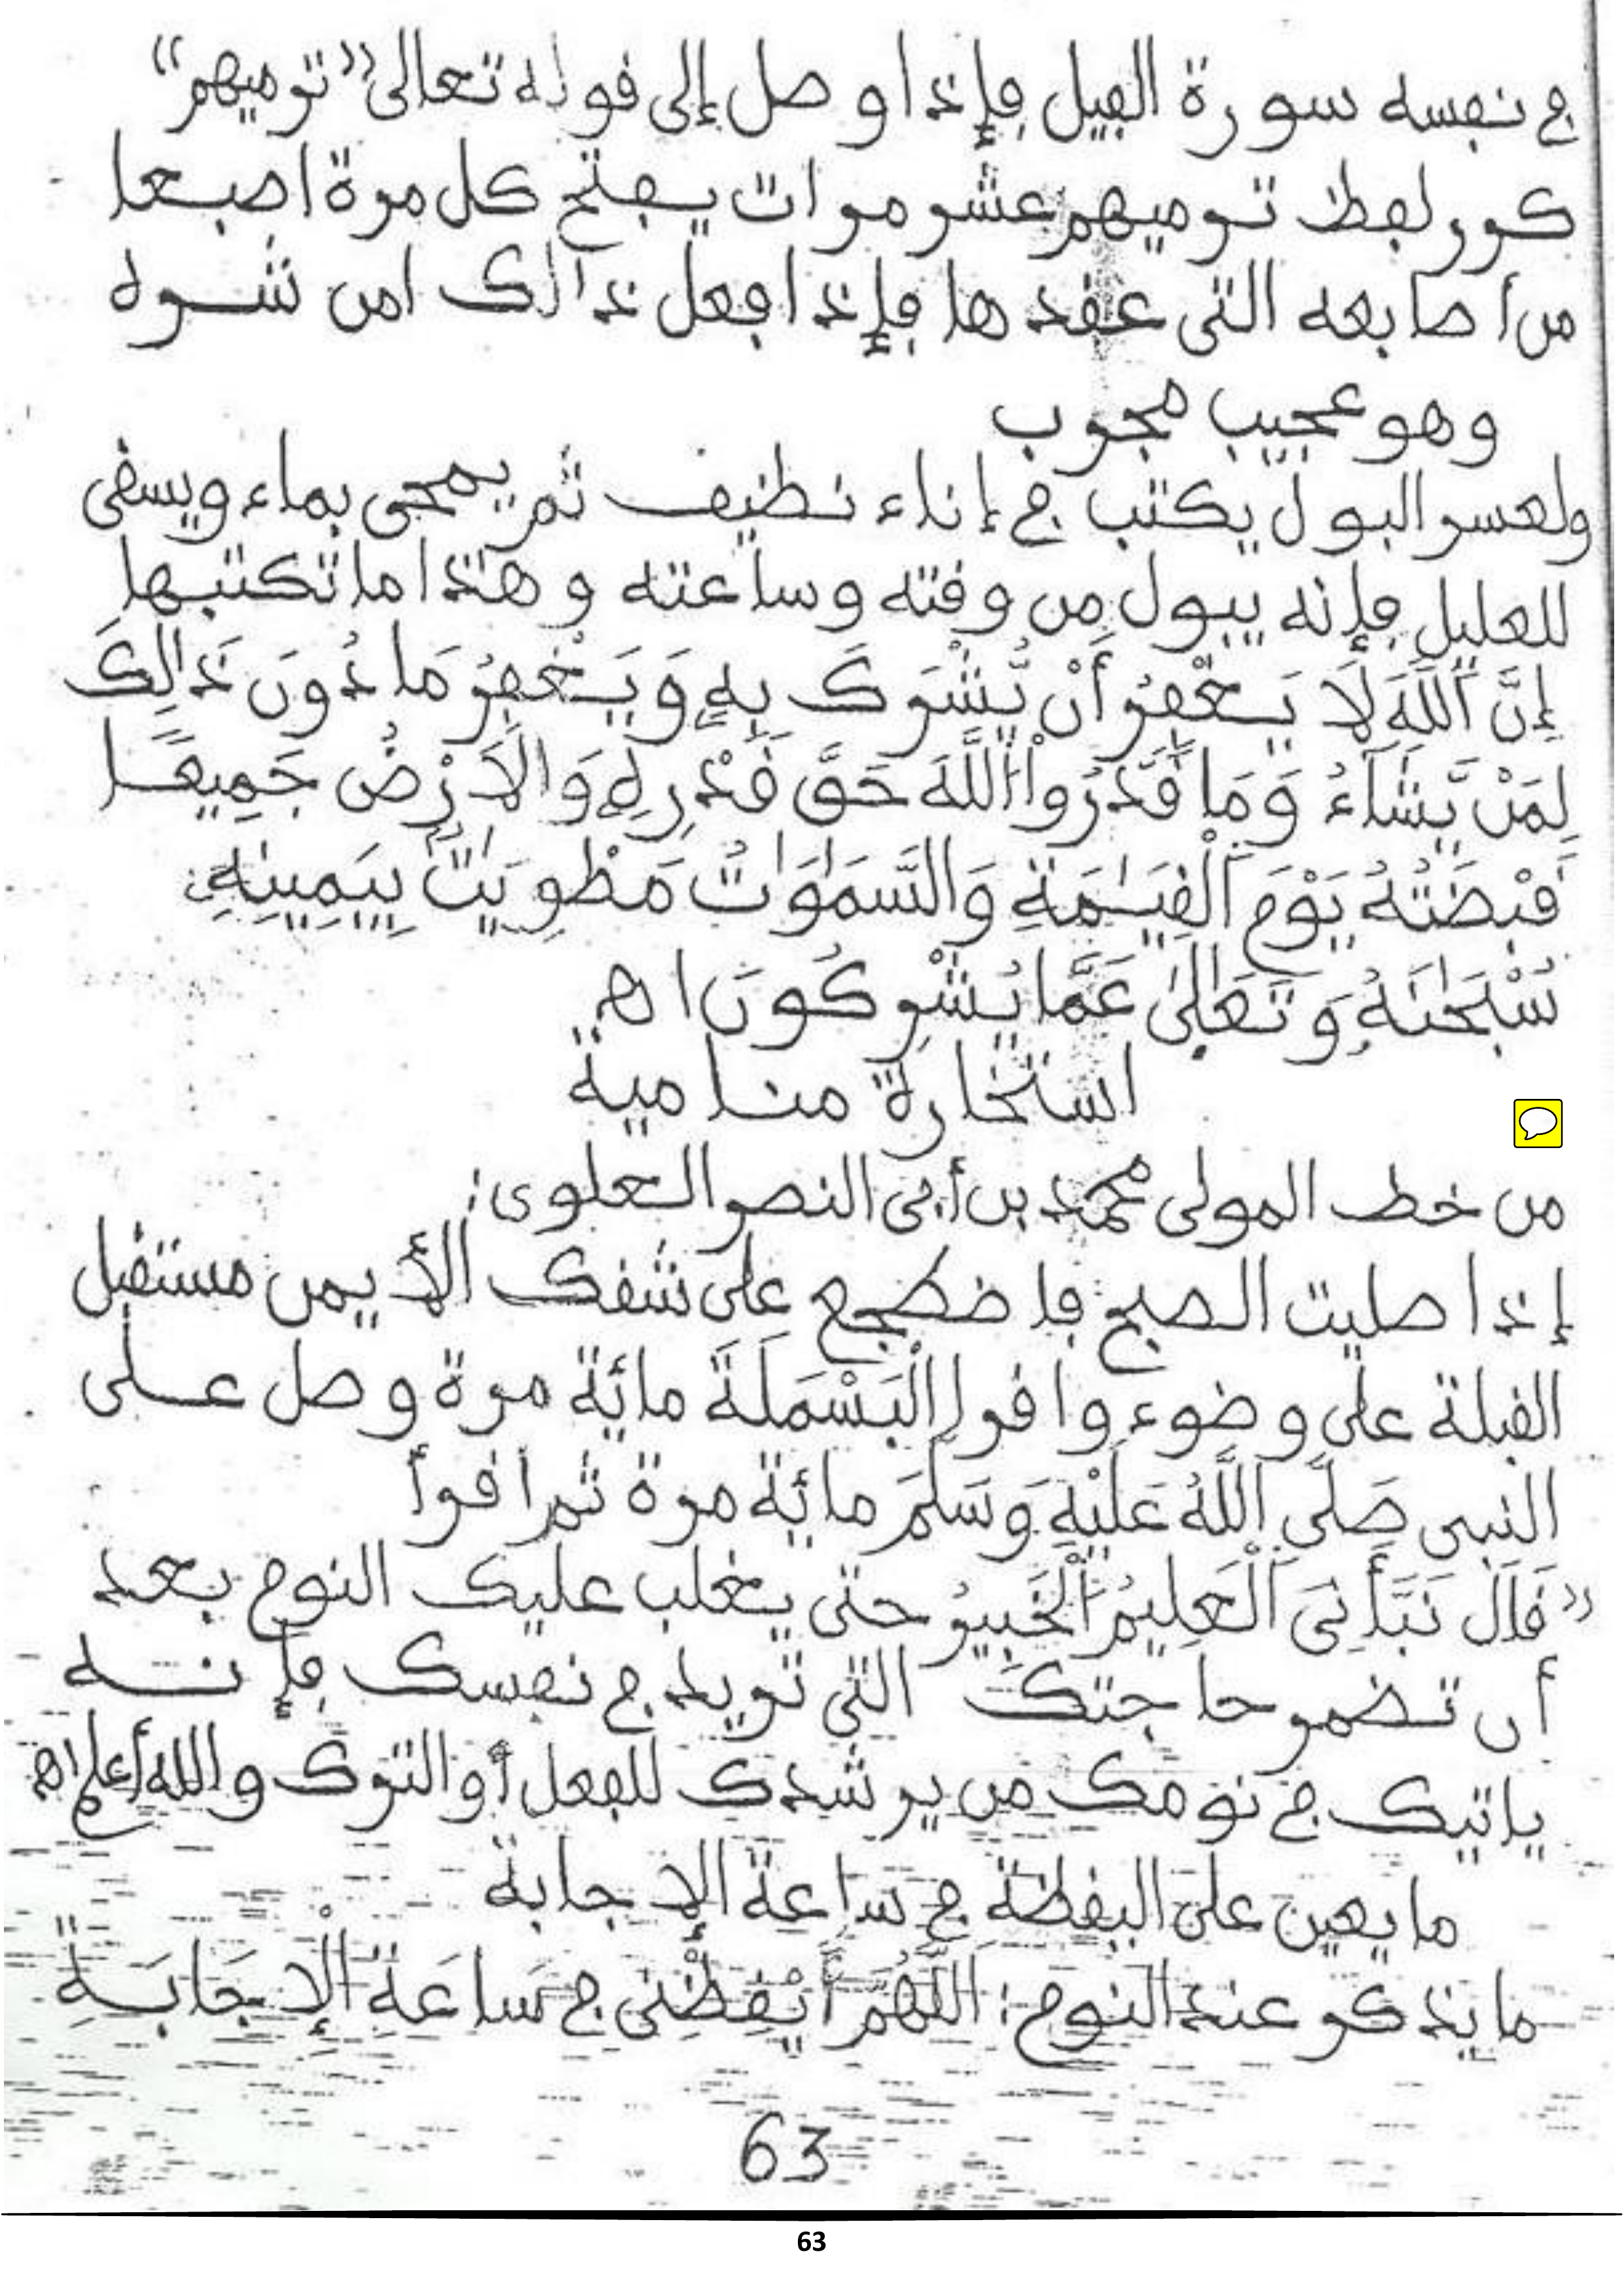 في نفسه سورة الفيل فإذا وصل إلى قوله تعالى «ترميهم»
كرر لفظ ترميهم عشر مرات يفتح كل مرة اصبعا
من أصابعه التي عقدها فإذا فعل ذالك امن شره
وهو عجيب مجرب
ولعسر البول يكتب في إناء نظيف ثم يمحى بماء ويسقى
للعليل فإنه يبول من وقته وساعته وهذا ما تكتبها
إِنَّ اَللَّهَ لَا يَغْفِرُ أَنْ يُّشْرَكَ بِهِ وَيَغْفِرُ مَا دُونَ ذَالِكَ
لِمَنْ يَّشَآءُ وَمَا قَدَرُواْ اللَّهَ حَقَّ قَدْرِهِ وَالَارْضُ جَمِيعًا
قَبْضَتُهُ يَوْمَ اَلْقِيَٰمَةِ وَالسَّمَٰوَٰتُ مَطْوِيَّٰتٌ بِيَمِينِهِ
سُبْحَٰنَهُ وَتَعَٰلَىٰ عَمَّا يُشْرِكُونَ اهـ
استخارة منامية
من خط المولى محمد بن أبي النصر العلوي:
إذا صليت الصبح فاضطجع على شقك الأيمن مستقبل
القبلة على وضوء واقرإ الْبَسْمَلَةَ مائة مرة وصل على
النبي صَلَّى اَللَّهُ عَلَيْهِ وَسَلَّمَ مائة مرة ثم اقرأ
«قَالَ نَبَّأَنِيَ اَلْعَلِيمُ اَلْخَبِيرُ حتى يغلب عليك النوم بعد
أن تضمر حاجتك التي تريد في نفسك فإنه
ياتيك في نومك من يرشدك للفعل أو الترك والله أعلم اهـ
ما يعين على اليقظة في ساعة الإجابة
ما يذكر عند النوم: اَللَّهُمَّ أَيْقِظْنِي في سَاعَةِ الْإِجَابَةِ
63
63